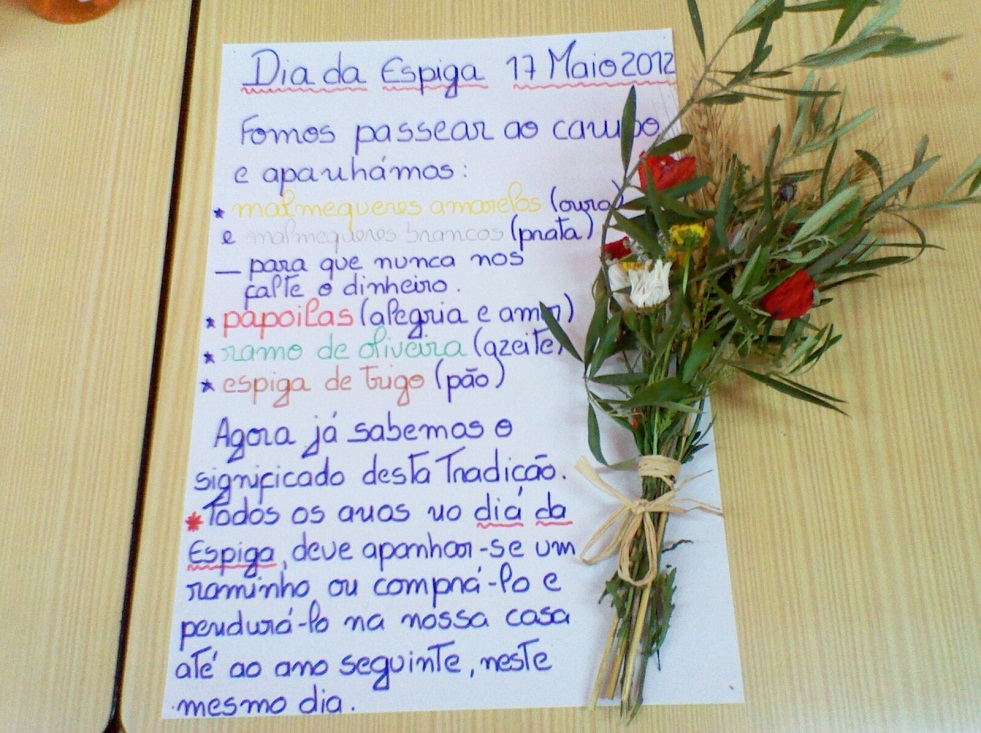 Dia da Espiga 17 Maio 2012
Fomos passear ao campo
e apanhámos:
* malmequeres amarelos (ouro)
e malmequeres brancos (prata)
— para que nunca nos
falte o dinheiro.
* papoilas (alegria e amor)
* ramo de oliveira (azeite)
* espiga de trigo (pão)
Agora já sabemos o
significado desta Tradição.
* Todos os anos no dia da
Espiga, deve apanhar-se um
raminho ou comprá-lo e
pendurá-lo na nossa casa
até ao ano seguinte, neste
mesmo dia.